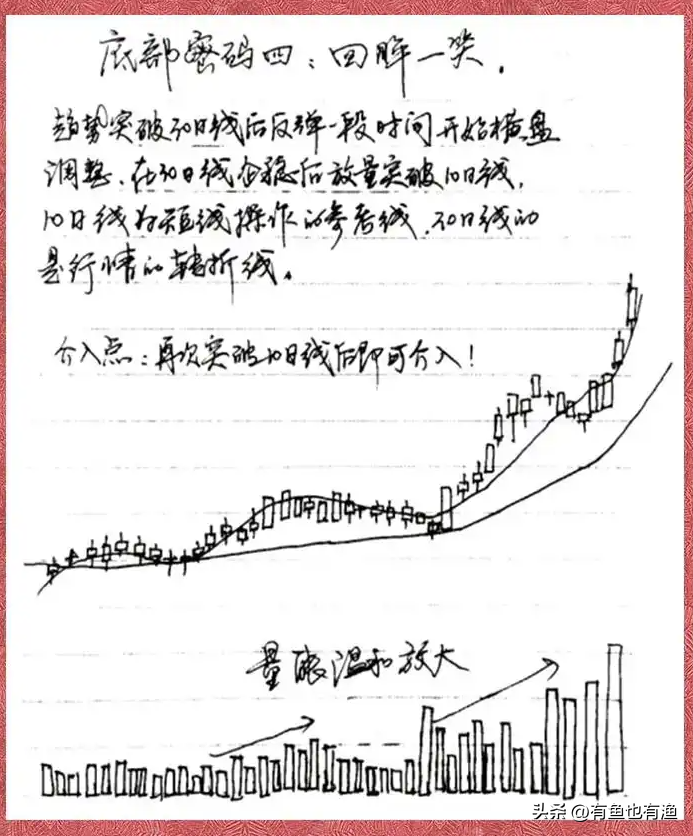 底部密码四:回眸一笑.
趋势突破30日线后反弹一段时间开始横盘
调整、在30日线企稳后放量突破10日线,
10日线为短线操作的参考线.30日线的
是行情的转折线。
介入点:再次突破10日线后即可介入!
量能温和放大
头条 @有鱼也有渔